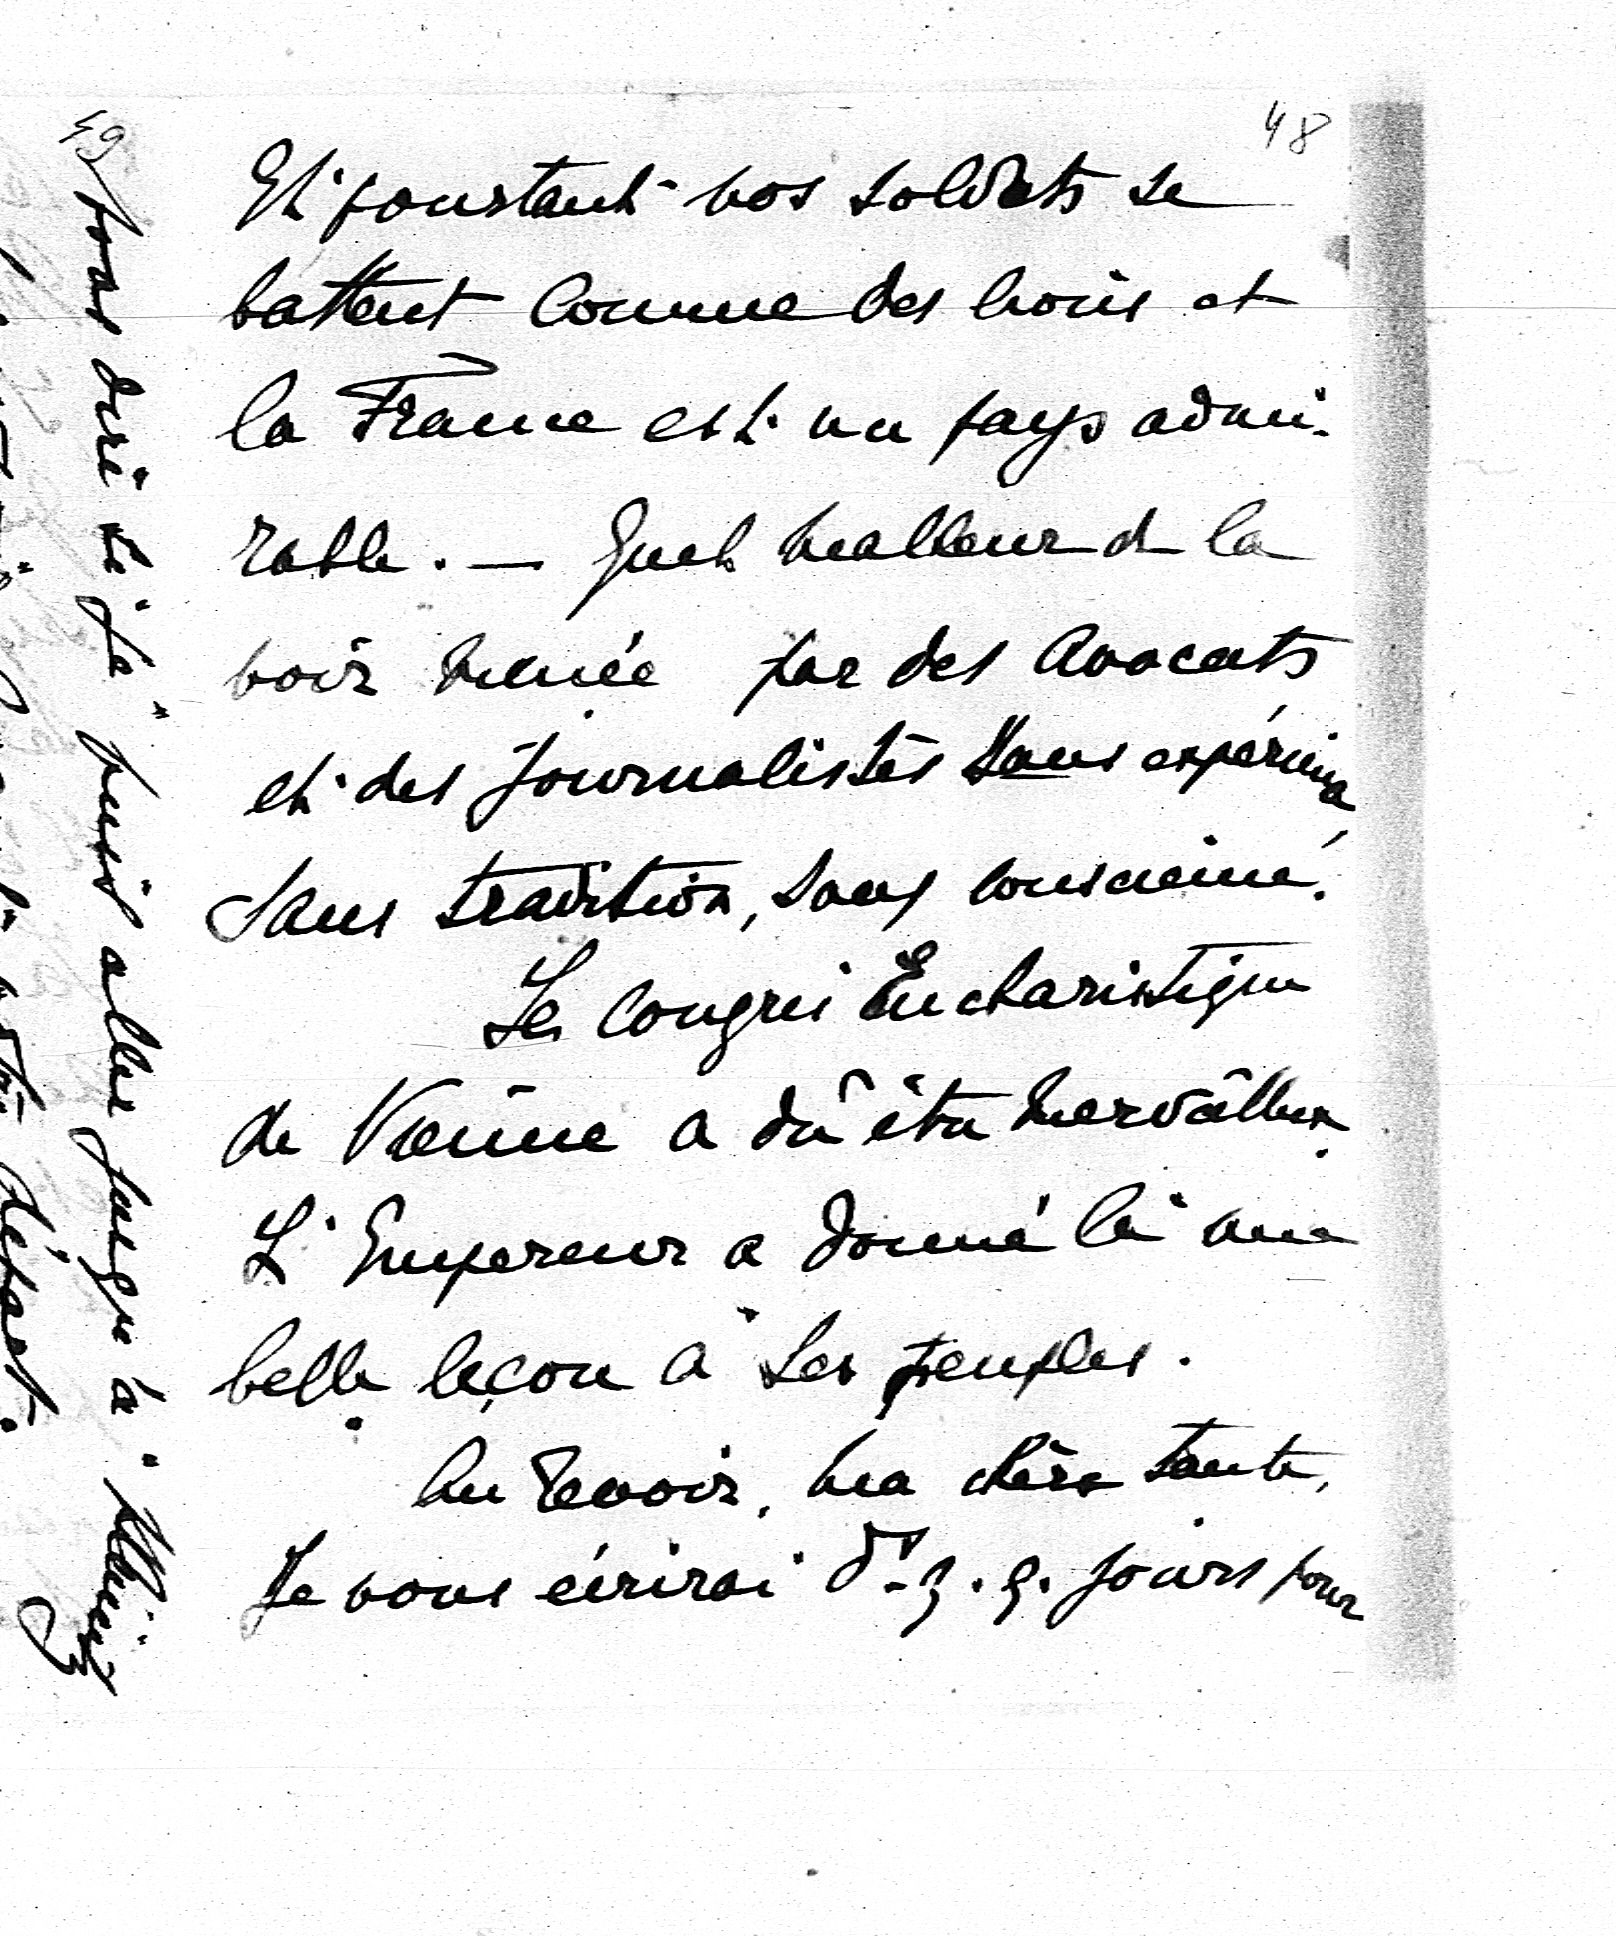 48
Et pourtant nos soldats se
battent comme des lions et
la France est un pays admi-
rable. — Quel malheur de la
voir menée par des avocats
et des journalistes sans expérience
sans tradition, sans conscience.
Le Congrès Eucharistique
de Vienne a dû être merveilleux.
L'Empereur a donné là une
belle leçon à ses peuples.
Au revoir, ma chère tante,
Je vous écrirai d. q. q. jours pour
49
vous dire si je puis aller jusqu'à
départ.